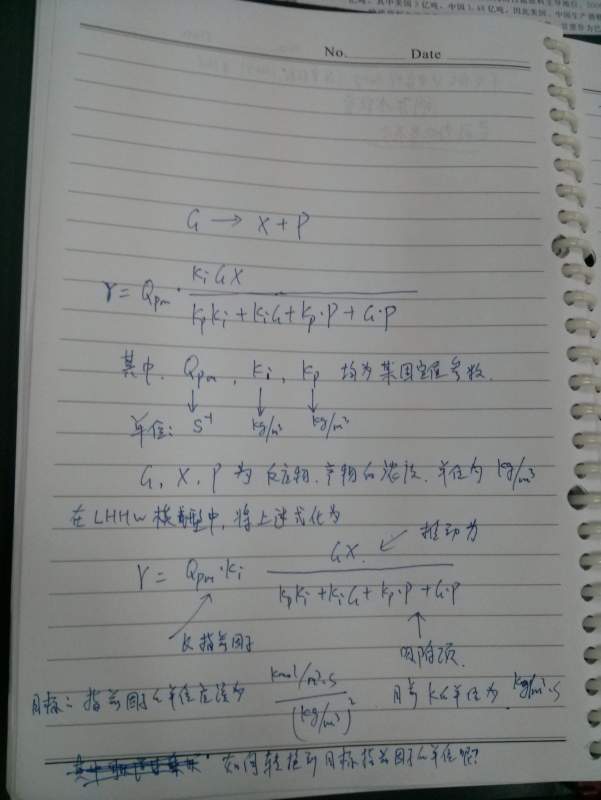 亿吨，其中美国3亿吨，中国1.45亿吨，因此美国、中国生产酒精
No. Date
G → X + P
r = Qpm · kiGX / (kpki + kiG + kp·P + G·P)
其中, Qpm, ki, kp 均为某固定值参数.
单位: S⁻¹ kg/m³ kg/m³
G, X, P 为反应物、产物的浓度, 单位为 kg/m³
在LHHW模型中, 将上述式化为
r = Qpm·ki GX / (kpki + kiG + kp·P + G·P) 推动力
k 指前因子 吸附项.
目标: 指前因子的单位应该为 (kmol/m³·s) / (kg/m³)² 目号k的单位为 kg/m³·s
如何转换到目标指前因子的单位呢?